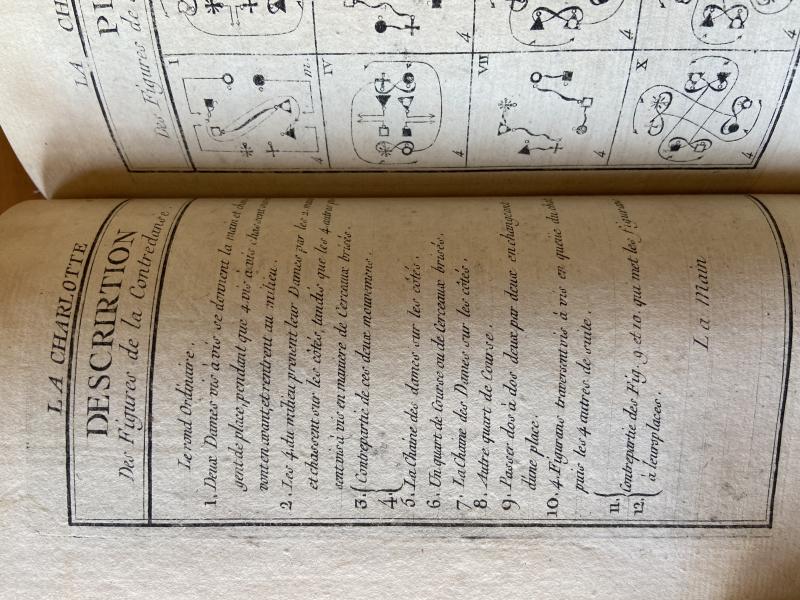 LA CHARLOTTE
DESCRIRTION
Des Figures de la Contredanse.
Le rond Ordinaire.
1. Deux Dames vis à vis se donnent la main et
gent de place, pendant que 4 vis à vis chassent
vont en avant, et rentrent au milieu.
2. Les 4 du milieu prenent leur Dames par les 2
et chassent sur les côtés, tandis que les 4 autres
sent vis à vis en maniere de Cerceaux brisés.
3. Contrepartie de ces deux mouvemens.
4.
5. La Chaine des dames sur les côtés.
6. Un quart de Course ou de Cerceaux brisés.
7. La Chaine des Dames sur les côtés.
8. Autre quart de Course.
9. Passer dos à dos deux par deux en changeant
dune place.
10. 4 Figurans traversent vis à vis en queüe du
puis les 4 autres de suite.
11. Contrepartie des Fig. 9 et 10. qui met les figurans
12. à leurs places.
La Main
LA CH
PL
Des Figures de
I
m.
4
IV
4
4
VII
4
X
4